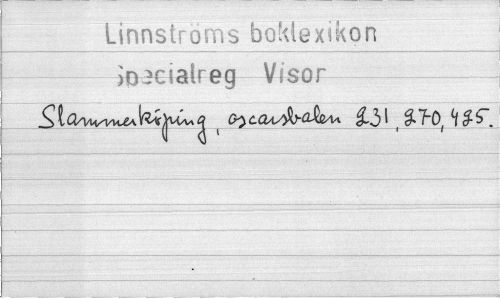 Linnströms boklexikon
Specialreg Visor
Slammerköping, oscarsbalen 231, 270, 425.